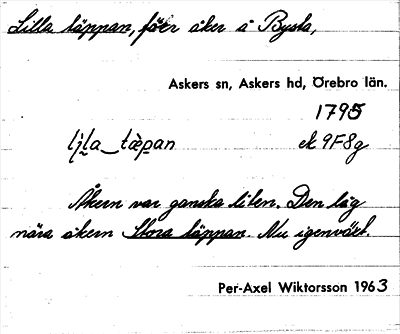 Lilla täppan, förr åker å Bysta,
Askers sn, Askers hd, Örebro län.
1795
ljla_tæpan ek 9F8g
Åkern var ganska liten. Den låg
nära åkern Stora täppan. Nu igenväxt.
Per-Axel Wiktorsson 1963